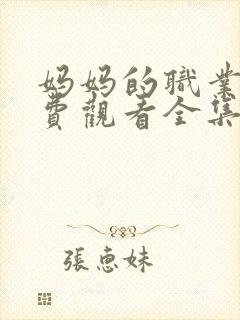 妈妈的職業
費觀看全集
張惠妹